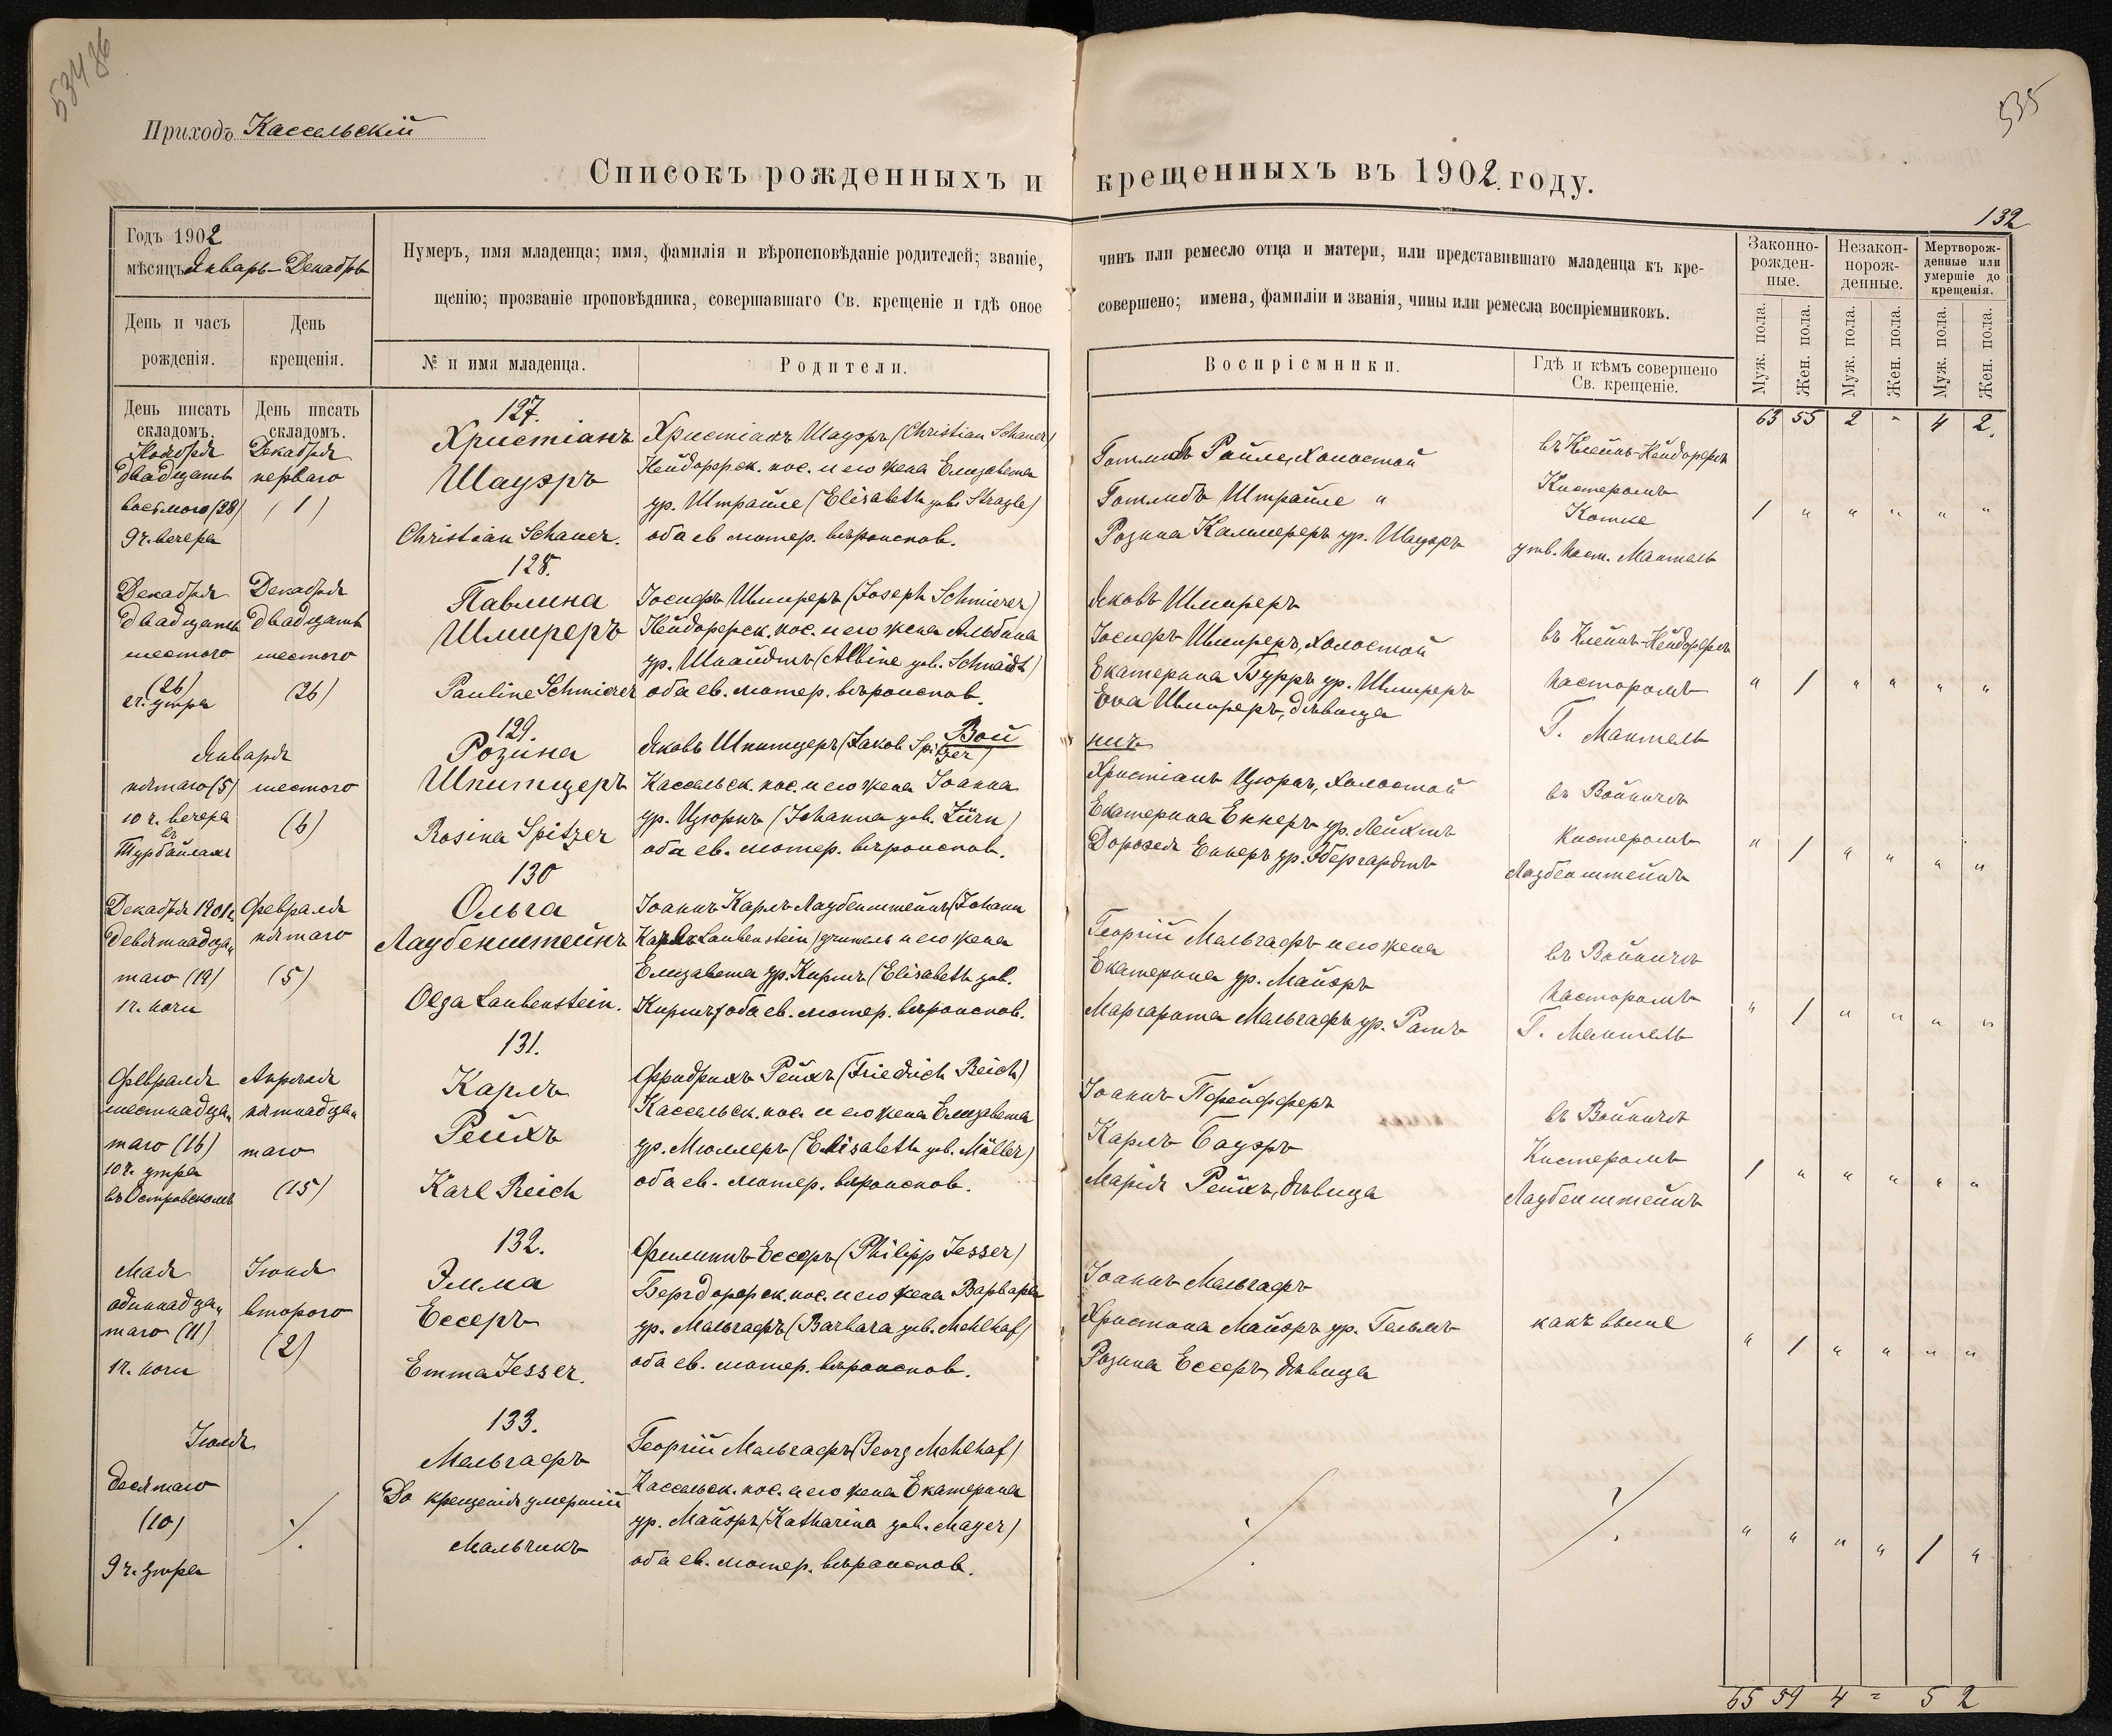 Приходъ Кассельскій
535
Списокъ рожденныхъ и крещенныхъ въ 1902 году.
132
Годъ 1902
мѣсяцъ Январь-Декабрь
Нумеръ, имя младенца; имя, фамилія и вѣроисповѣданіе родителей; званіе, чинъ или ремесло отца и матери, или представившаго младенца къ кре-
щенію; прозваніе проповѣдника, совершавшаго Св. крещеніе и гдѣ оное совершено; имена, фамиліи и званія, чины или ремесла воспріемниковъ.
Законно-
рожден-
ные.
Незакон-
норож-
денные.
Мертворож-
денные или
умершіе до
крещенія.
День и часъ
рожденія.
День
крещенія.
№ и имя младенца.
Родители.
Воспріемники.
Гдѣ и кѣмъ совершено
Св. крещеніе.
Муж. пола.
Жен. пола.
Муж. пола.
Жен. пола.
Муж. пола.
Жен. пола.
День писать
складомъ.
День писать
складомъ.
63 55 2 - 4 2.
Ноября
двадцать
восьмого (28)
9 ч. вечера
Декабря
перваго
(1)
127.
Христіанъ
Шауэръ
Christian Schauer.
Христіанъ Шауэръ (Christian Schauer)
Нейдорфск. пос. и его жена Елизавета
ур. Штрайле (Elisabeth geb. Strayle)
оба ев. лютер. вѣроиспов.
Готлибъ Райле, холостой
Готлибъ Штрайле "
Розина Каммереръ ур. Шауэръ
въ Клейнъ-Нейдорфѣ
Кистеромъ
Котке
утв. паст. Мантель
1 " " " " "
Декабря
двадцать
шестого
(26)
2 ч. утра
Декабря
двадцать
шестого
(26)
128.
Павлина
Шмиреръ
Pauline Schmierer
Іосифъ Шмиреръ (Joseph Schmierer)
Нейдорфск. пос. и его жена Альбина
ур. Шнайдтъ (Albine geb. Schnaidt)
оба ев. лютер. вѣроиспов.
Яковъ Шмиреръ
Іосифъ Шмиреръ, холостой
Екатерина Бурръ ур. Шмиреръ
Ева Шмиреръ, дѣвица
въ Клейнъ-Нейдорфѣ
пасторомъ
Г. Мантель
" 1 " " " "
Войничъ
Января
пятаго (5)
10 ч. вечера
въ
Турбайлахъ
шестого
(6)
129.
Розина
Шпитцеръ
Rosina Spitzer
Яковъ Шпитцеръ (Jakob Spitzer)
Кассельск. пос. и его жена Іоанна
ур. Цюрнъ (Johanna geb. Zürn)
оба ев. лютер. вѣроиспов.
Христіанъ Цюрнъ, холостой
Екатерина Еннеръ ур. Лейхтъ
Доротея Еннеръ ур. Эбергардтъ
въ Войничѣ
Кистеромъ
Лаубенштейнъ
" 1 " " " "
Декабря 1901 г.
девятнадца-
таго (19)
1 ч. ночи
Февраля
пятаго
(5)
130
Ольга
Лаубенштейнъ
Olga Laubenstein.
Іоаннъ Карлъ Лаубенштейнъ (Johann
Karl Laubenstein) учитель и его жена
Елизавета ур. Кирмъ (Elisabeth geb.
Кирмъ) оба ев. лютер. вѣроиспов.
Георгій Мельгафъ и его жена
Екатерина ур. Майэръ
Маргарита Мельгафъ ур. Ратъ
въ Войничѣ
пасторомъ
Г. Мантель
" 1 " " " "
Февраля
шестнадца-
таго (16)
10 ч. утра
въ Островскомъ
Апрѣля
пятнадца-
таго
(15)
131.
Карлъ
Рейхъ
Karl Reich
Фридрихъ Рейхъ (Friedrich Reich)
Кассельск. пос. и его жена Елизавета
ур. Мюллеръ (Elisabeth geb. Müller)
оба ев. лютер. вѣроиспов.
Іоаннъ Пфейфферъ
Карлъ Бауэръ
Марія Рейхъ, дѣвица
въ Войничѣ
Кистеромъ
Лаубенштейнъ
1 " " " " "
Мая
одиннадца-
таго (11)
1 ч. ночи
Іюня
второго
(2)
132.
Эмма
Ессеръ
Emma Jesser.
Филиппъ Ессеръ (Philipp Jesser)
Бергдорфск. пос. и его жена Варвара
ур. Мельгафъ (Barbara geb. Mehlhaf)
оба ев. лютер. вѣроиспов.
Іоаннъ Мельгафъ
Христина Майэръ ур. Гельмъ
Розина Ессеръ, дѣвица
какъ выше
" 1 " " " "
Іюля
десятаго
(10)
9 ч. утра
133.
Мельгафъ
До крещенія умершій
Мальчикъ
Георгій Мельгафъ (Georg Mehlhaf)
Кассельск. пос. и его жена Екатерина
ур. Майэръ (Katharina geb. Mayer)
оба ев. лютер. вѣроиспов.
" " " " 1 "
65 59 4 = 5 2